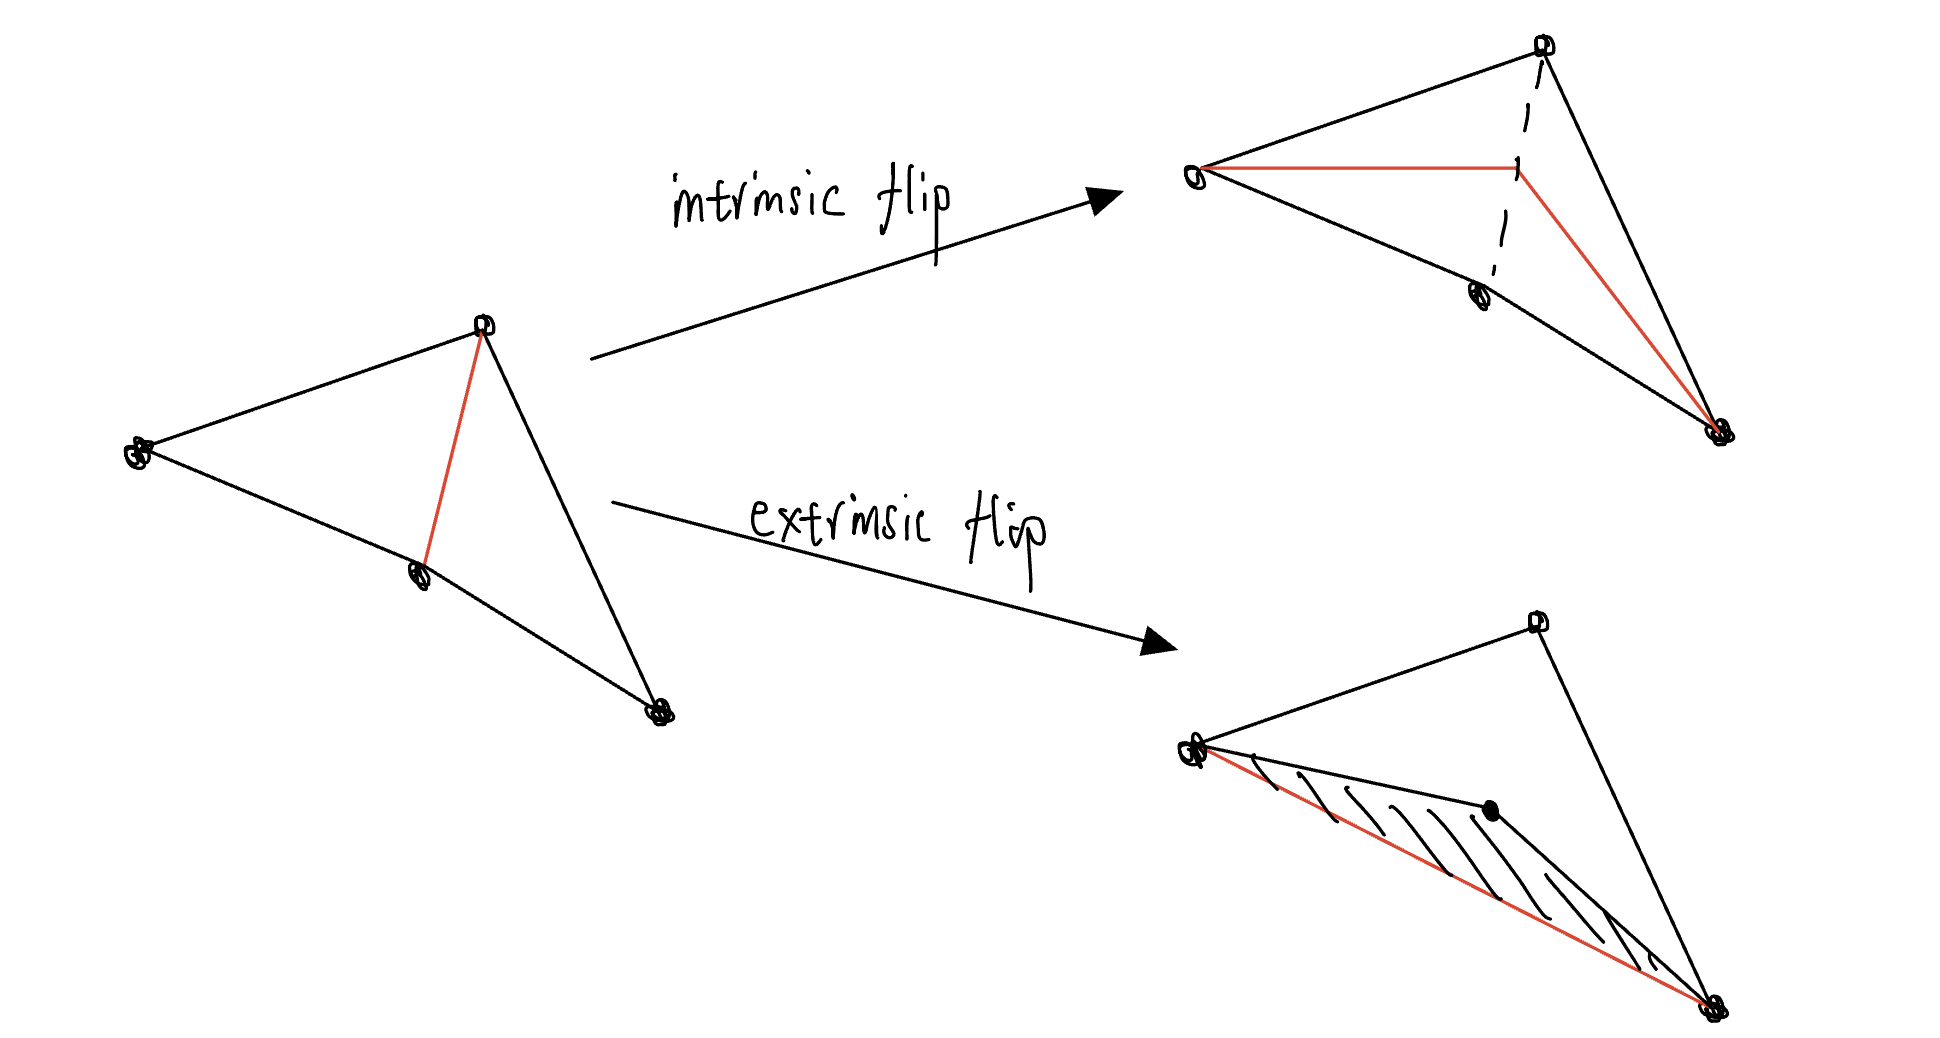 intrinsic flip
extrinsic flip